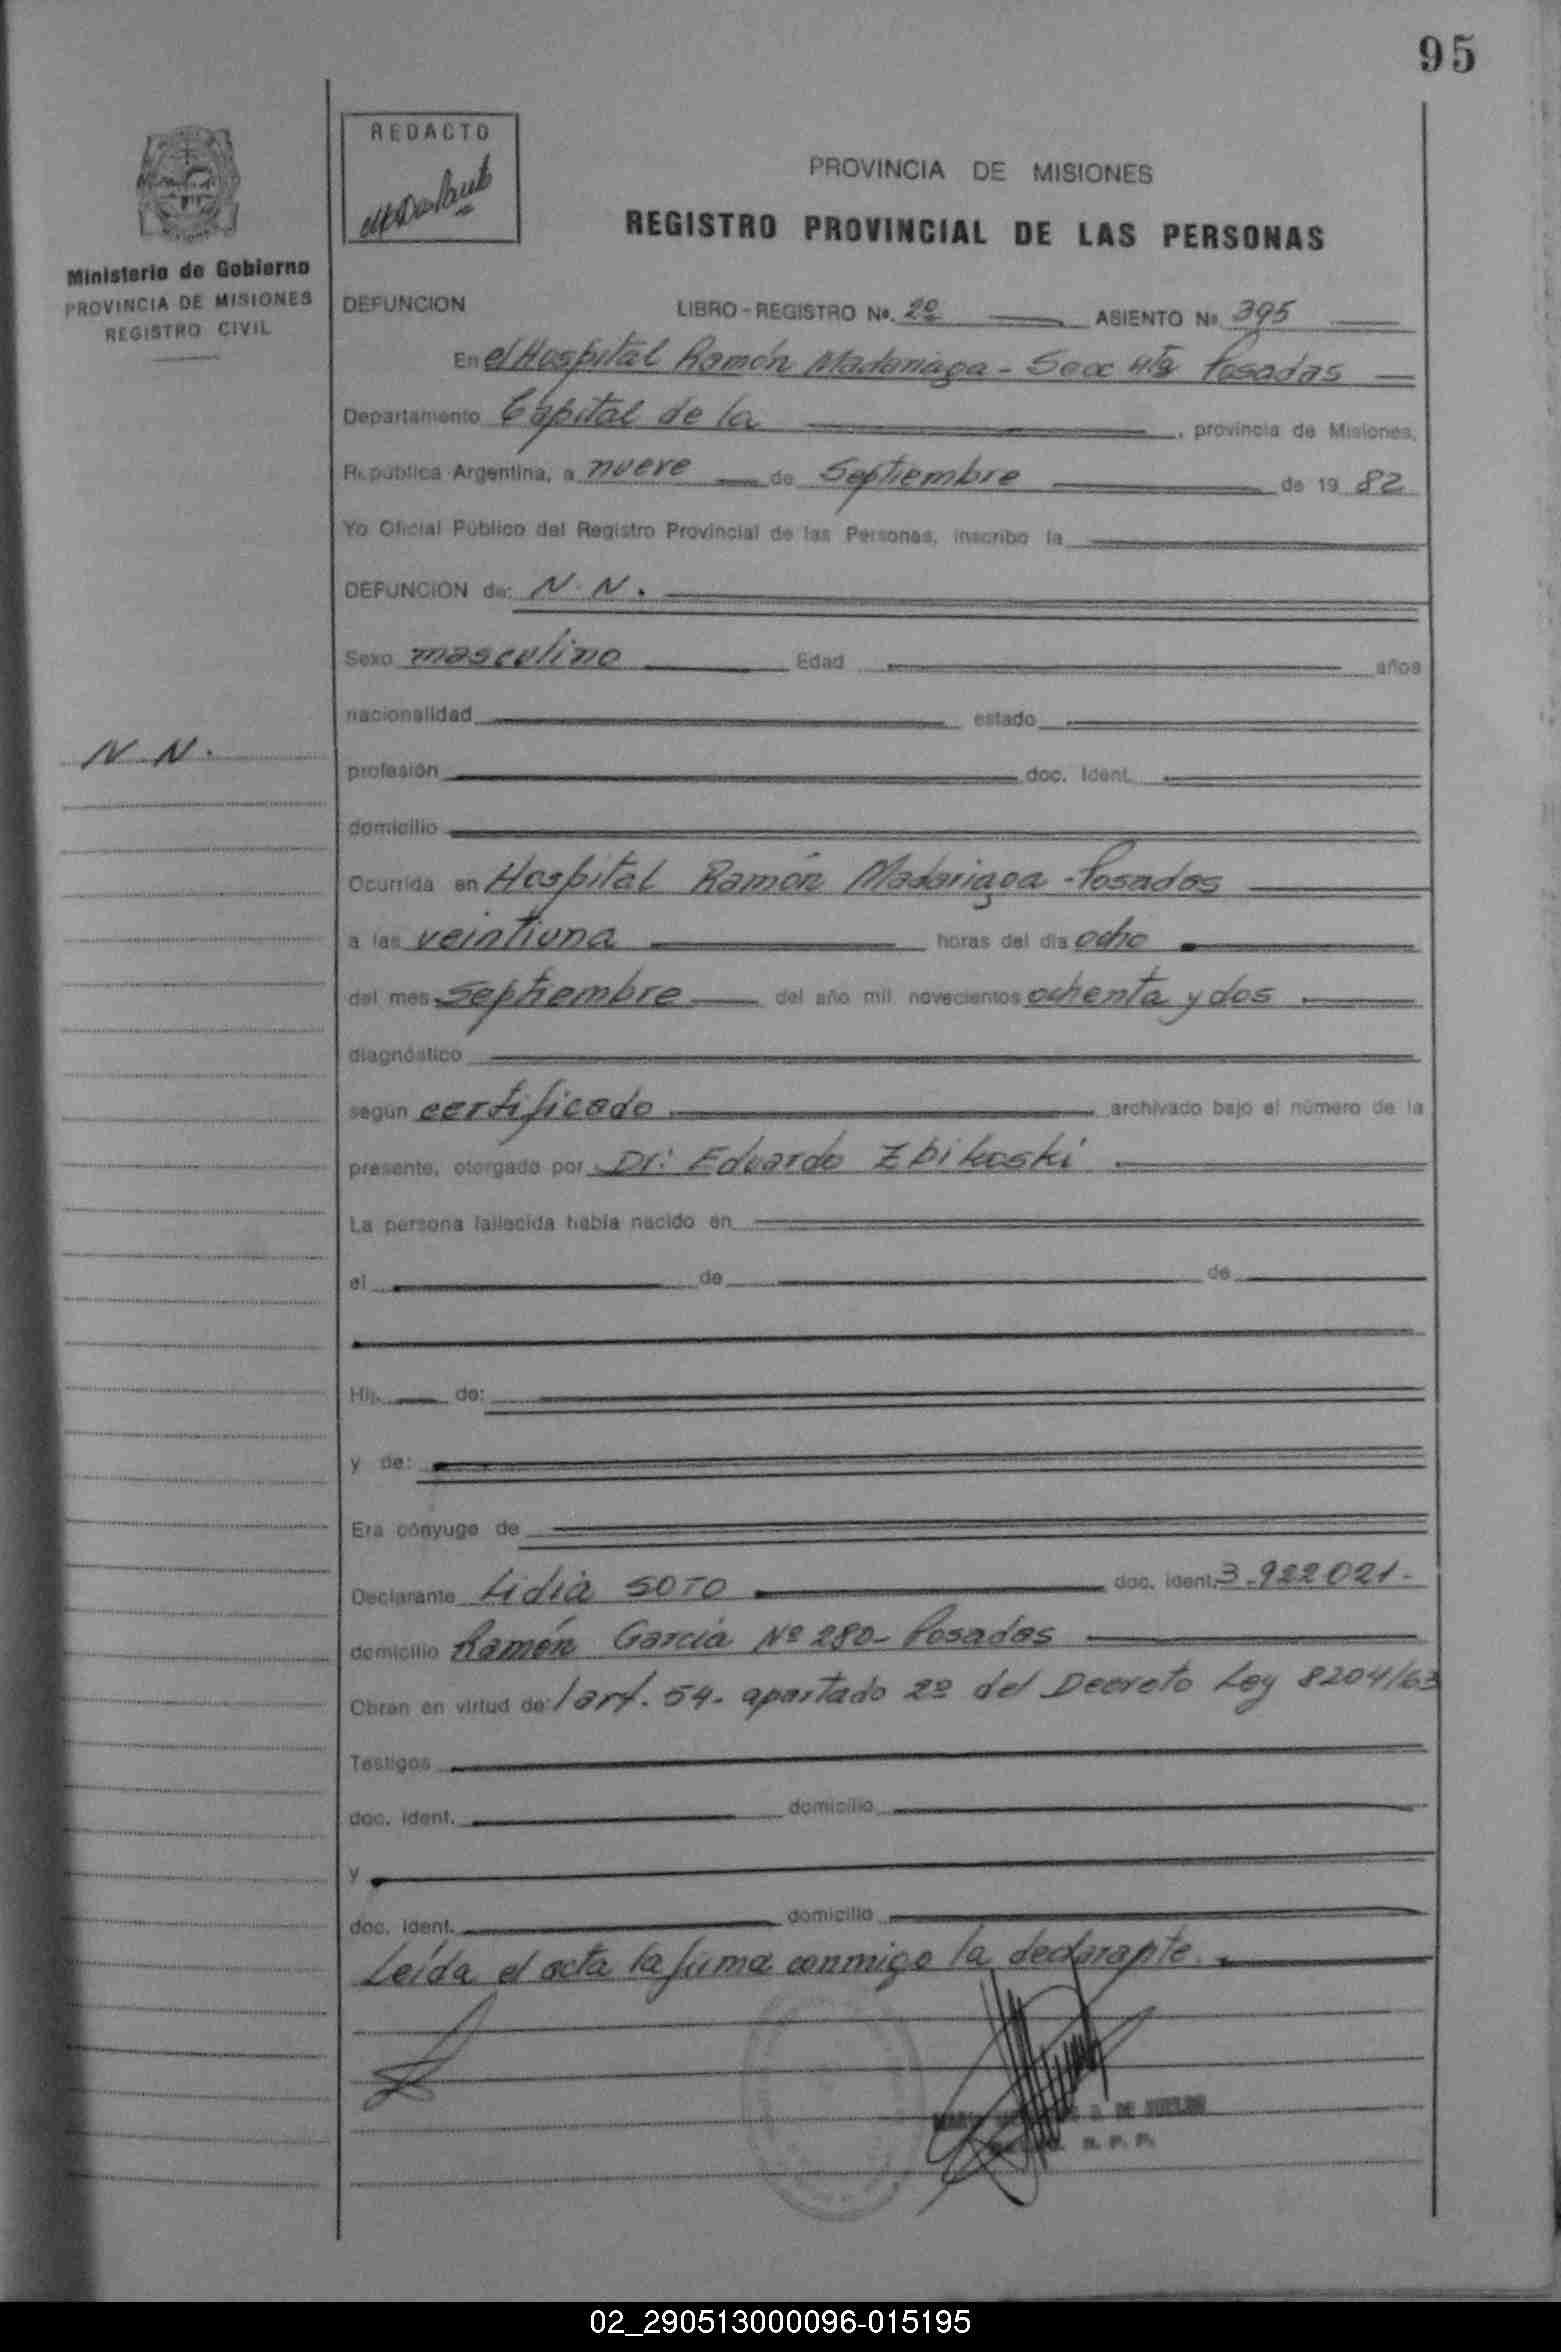 95
REDACTO
PROVINCIA DE MISIONES
REGISTRO PROVINCIAL DE LAS PERSONAS
Ministerio de Gobierno
PROVINCIA DE MISIONES
REGISTRO CIVIL
DEFUNCION LIBRO-REGISTRO Nº. 2º ASIENTO Nº 395
En el Hospital Ramón Madariaga - Secc 4ta Posadas
Departamento Capital de la , provincia de Misiones,
República Argentina, a nueve de Septiembre de 19 82
Yo Oficial Público del Registro Provincial de las Personas, inscribo la
DEFUNCION de: N. N.
Sexo masculino Edad años
nacionalidad estado
N. N.
profesión doc. Ident.
domicilio
Ocurrida en Hospital Ramón Madariaga - Posadas
a las veintiuna horas del día ocho
del mes Septiembre del año mil novecientos ochenta y dos
diagnóstico
según certificado archivado bajo el número de la
presente, otorgado por Dr: Eduardo Zbikoski
La persona fallecida había nacido en
el de de
Hij. de:
y de:
Era cónyuge de
Declarante Lidia SOTO doc. ident. 3.922021.
domicilio Ramón García Nº 280- Posadas
Obran en virtud de: l art. 54. apartado 2º del Decreto Ley 8204/63
Testigos
doc. ident. domicilio
y
doc. ident. domicilio
Leída el acta la firma conmigo la declarante.
R. P. P.
02_290513000096-015195